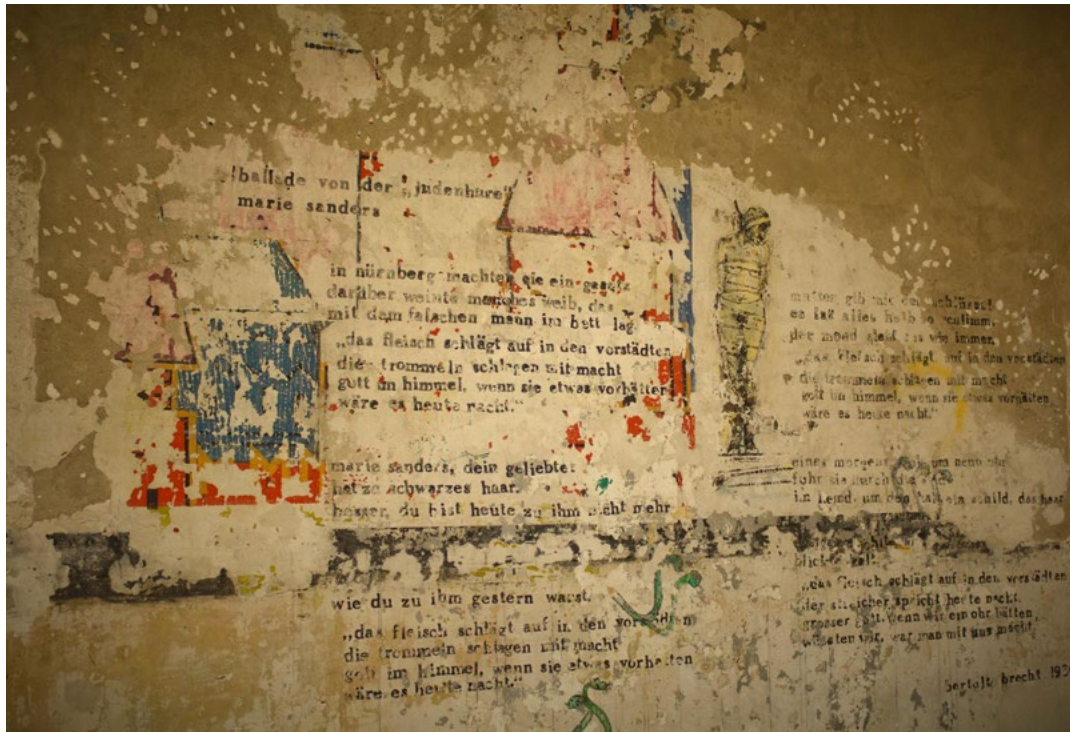 ballade von der „judenhure"
marie sanders
in nürnberg machten sie ein gesetz
darüber weinte manches weib, das
mit dem falschen mann im bett lag.
„das fleisch schlägt auf in den vorstädten
die trommeln schlagen mit macht
gott im himmel, wenn sie etwas vorhätten
wäre es heute nacht."
marie sanders, dein geliebter
hat zu schwarzes haar.
besser, du bist heute zu ihm nicht mehr
wie du zu ihm gestern warst.
„das fleisch schlägt auf in den vorstädten
die trommeln schlagen mit macht
gott im himmel, wenn sie etwas vorhatten
wäre es heute nacht."
mutter, gib mir den schlüssel
es ist alles halb so schlimm.
der mond sieht aus wie immer.
„das fleisch schlägt auf in den vorstädten
die trommeln schlagen mit macht
gott im himmel, wenn sie etwas vorhätten
wäre es heute nacht."
eines morgens, früh um neun uhr
fuhr sie durch die stadt
im hemd, um den hals ein schild, das haar
„das fleisch schlägt auf in den vorstädten
der streicher spricht heute nacht.
grosser gott, wenn wir ein ohr hätten
wüssten wir, was man mit uns macht."
bertolt brecht 193